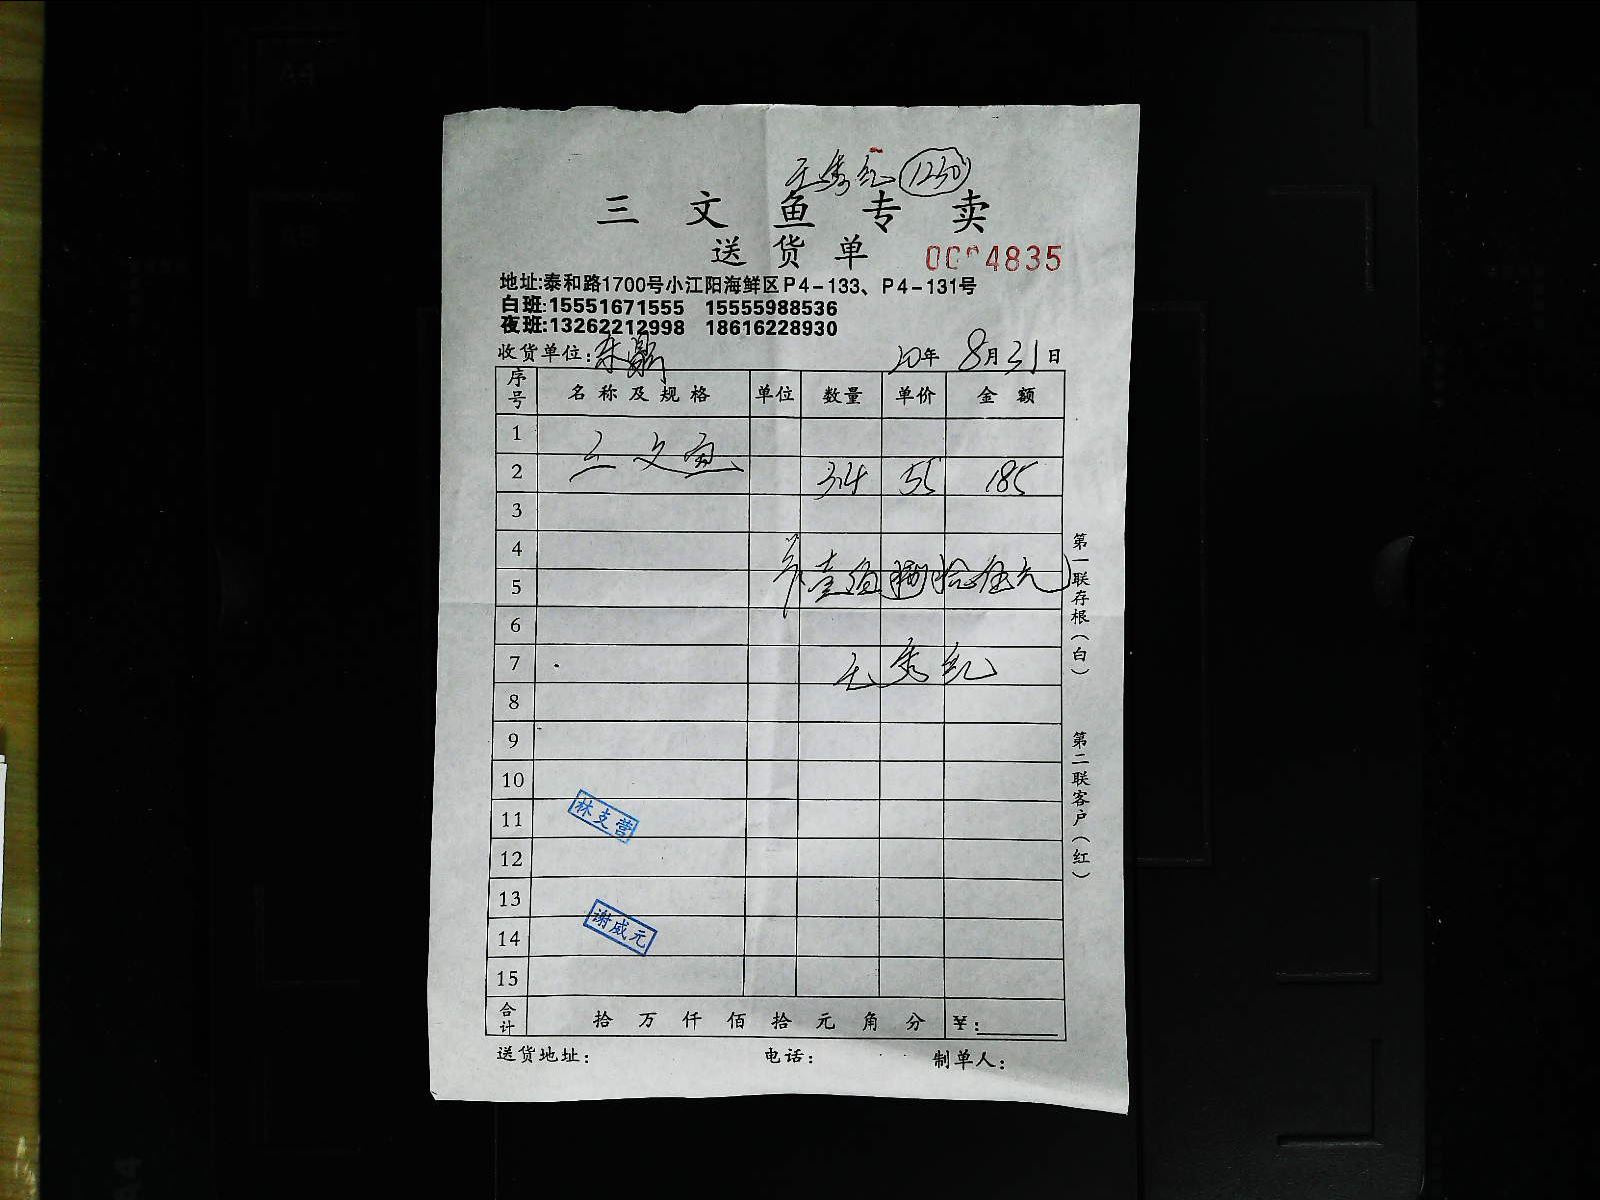 王秀纪 1230
三文鱼专卖
送货单 0004835
地址:泰和路1700号小江阳海鲜区P4-133、P4-131号
白班:15551671555 15555988536
夜班:13262212998 18616228930
收货单位: 20年8月31日
序号 名称及规格 单位 数量 单价 金额
1
三文鱼
2 55 185
3
4
共壹佰捌拾伍元
5
6
7 王秀纪
8
9
10
11 林支营
12
13
14 谢威元
15
合计 拾万仟佰拾元角分 ¥:
送货地址: 电话: 制单人:
第一联存根(白)
第二联客户(红)